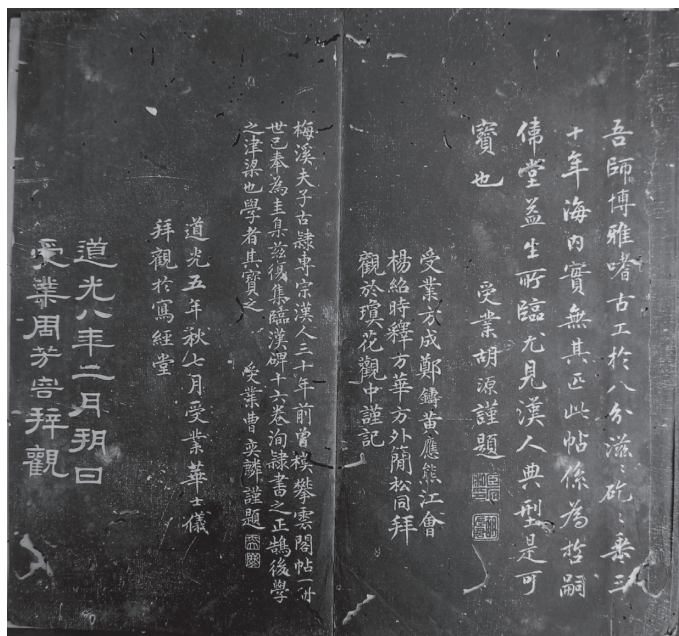 吾師博雅嗜古工於八分滋滋矻矻垂三
十年海內實無其匹此帖係為哲嗣
俤堂益生所臨尤見漢人典型是可
寶也 受業胡源謹題
受業方成鄭鑄黃應熊江會
楊紹時釋方華方外蕑松同拜
觀於瓊花觀中謹記
梅溪夫子古隸專宗漢人三十年前曾橅攀雲閣帖一冊
世已奉為圭臬茲復集臨漢碑十六卷洵隸書之正鵠後學
之津梁也學者其寶之 受業曹奕麟謹題
道光五年秋七月受業華士儀
拜觀於寫經堂
道光八年二月朔日
受業周芳容拜觀